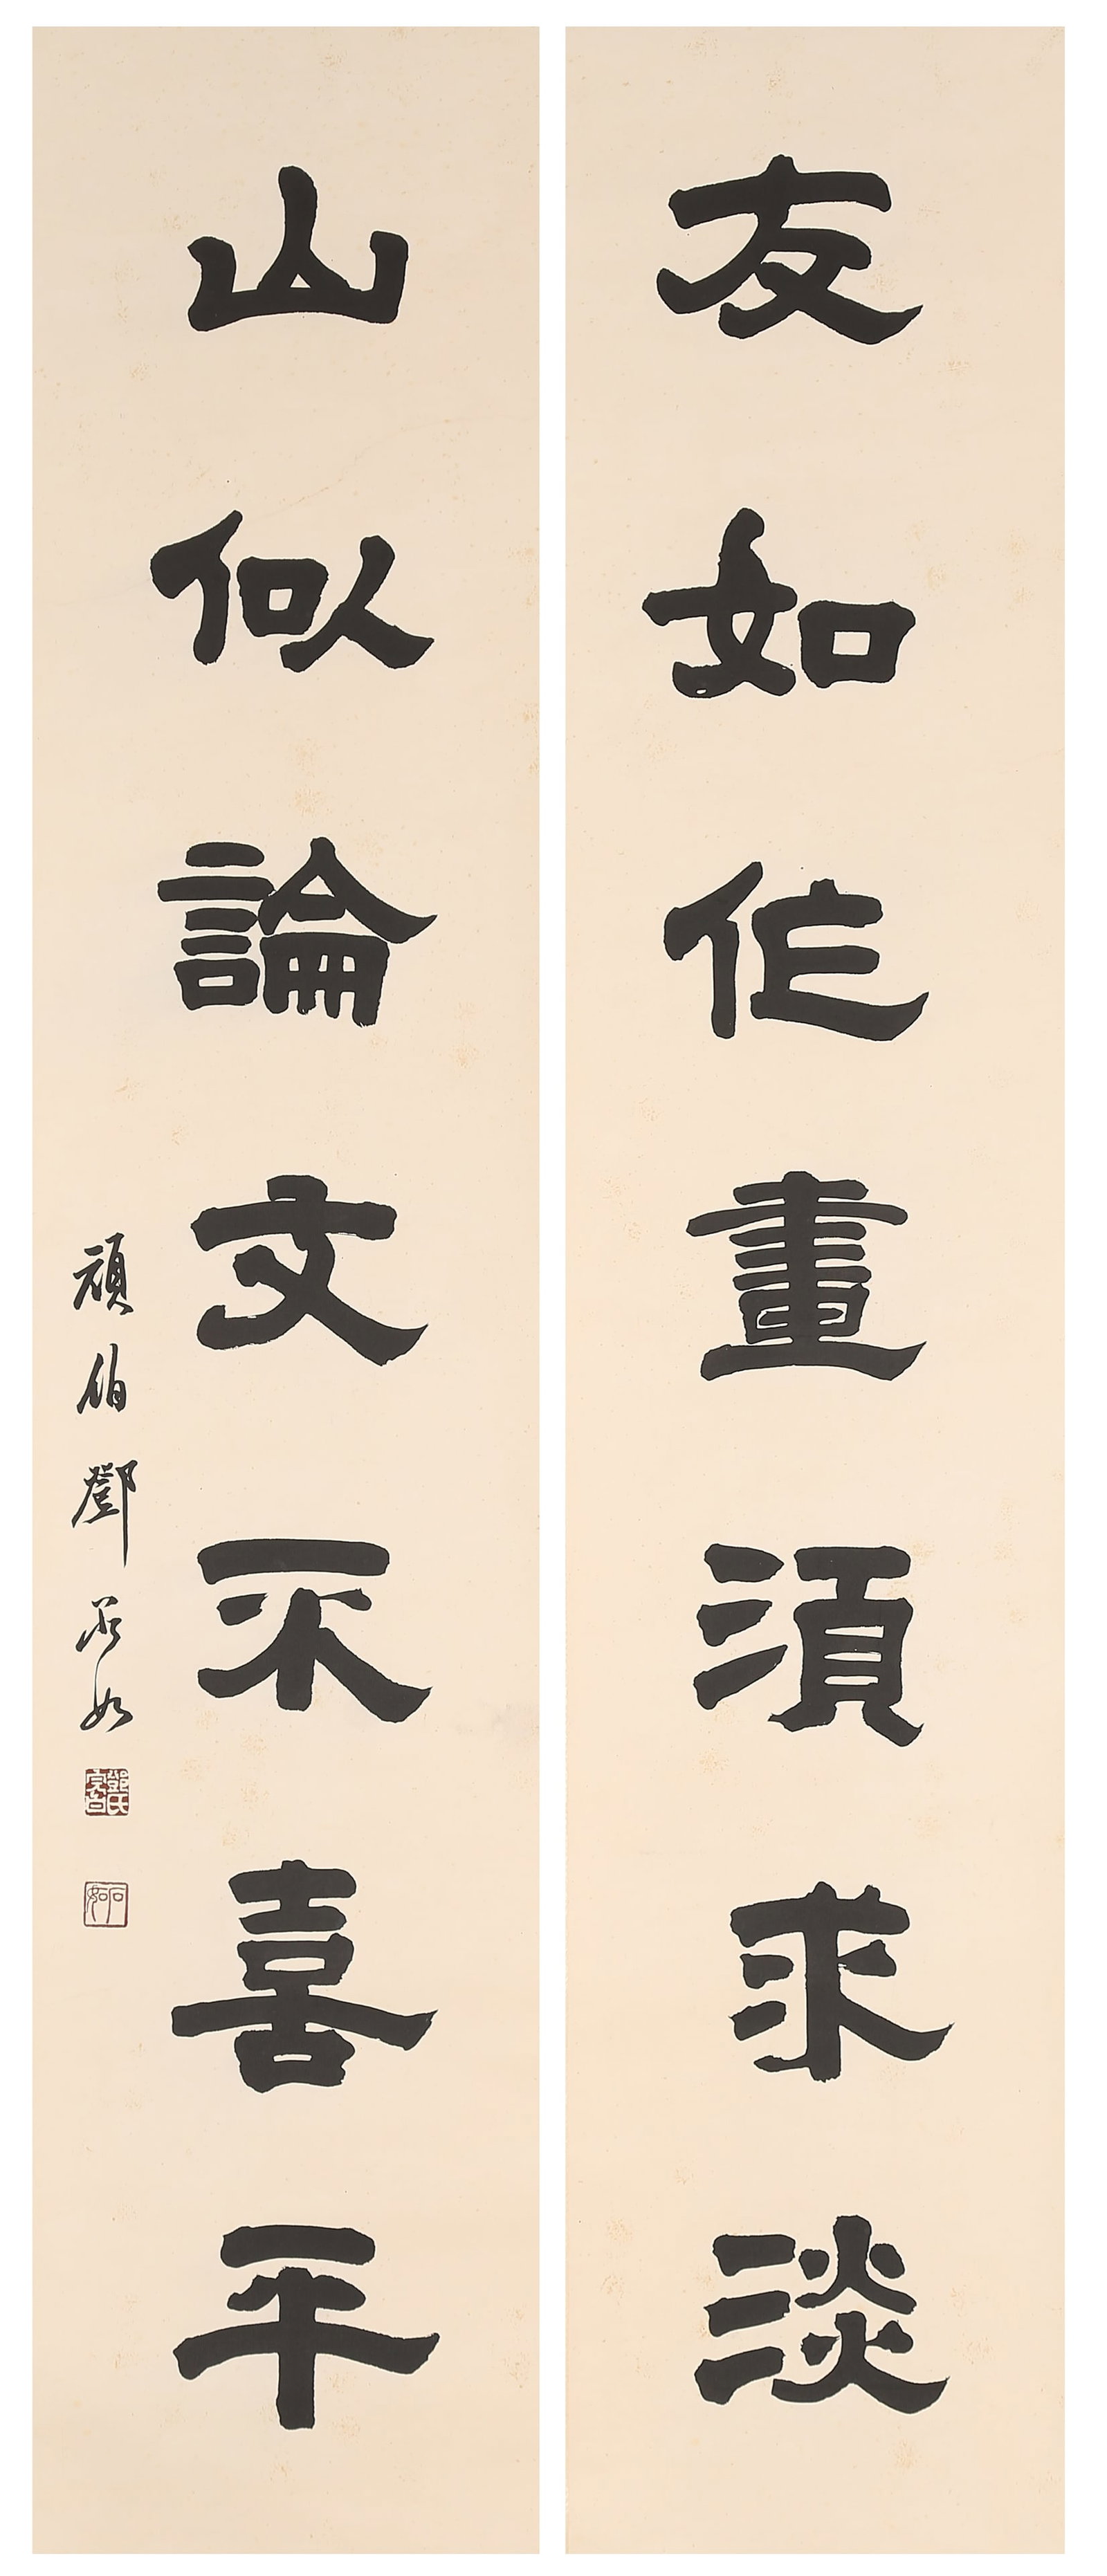 友如作畫須求淡
山似論文不喜平
頑伯鄧石如
鄧氏完白
石如